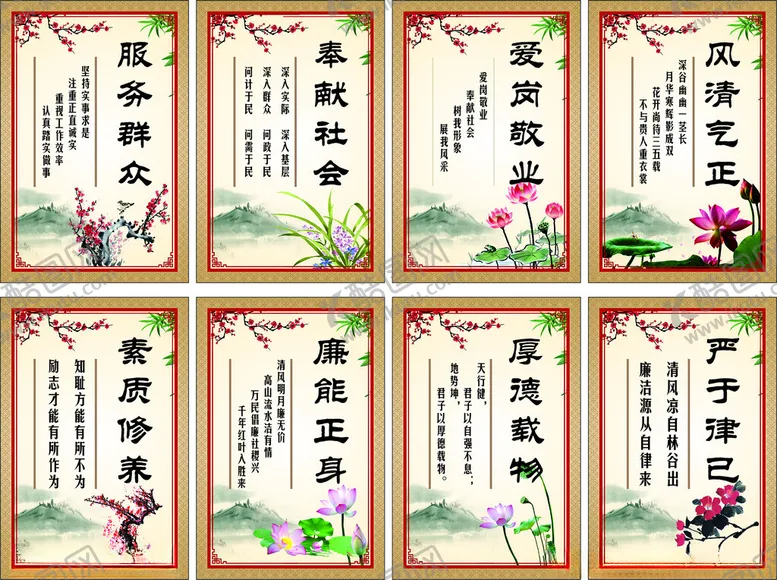 服务群众
坚持实事求是
注重正直诚实
重视工作效率
认真踏实做事
奉献社会
深入实际 深入基层
深入群众 问政于民
问计于民 问需于民
爱岗敬业
爱岗敬业
奉献社会
树我形象
展我风采
风清气正
深谷幽幽一茎长
月华寒辉影成双
花开尚待三五载
不与贵人重衣裳
素质修养
知耻方能有所不为
励志才能有所作为
廉能正身
清风明月廉无价
高山流水洁有情
万民倡廉社稷兴
千年红叶入胜来
厚德载物
天行健，
君子以自强不息；
地势坤，
君子以厚德载物。
严于律己
清风凉自林谷出
廉洁源从自律来